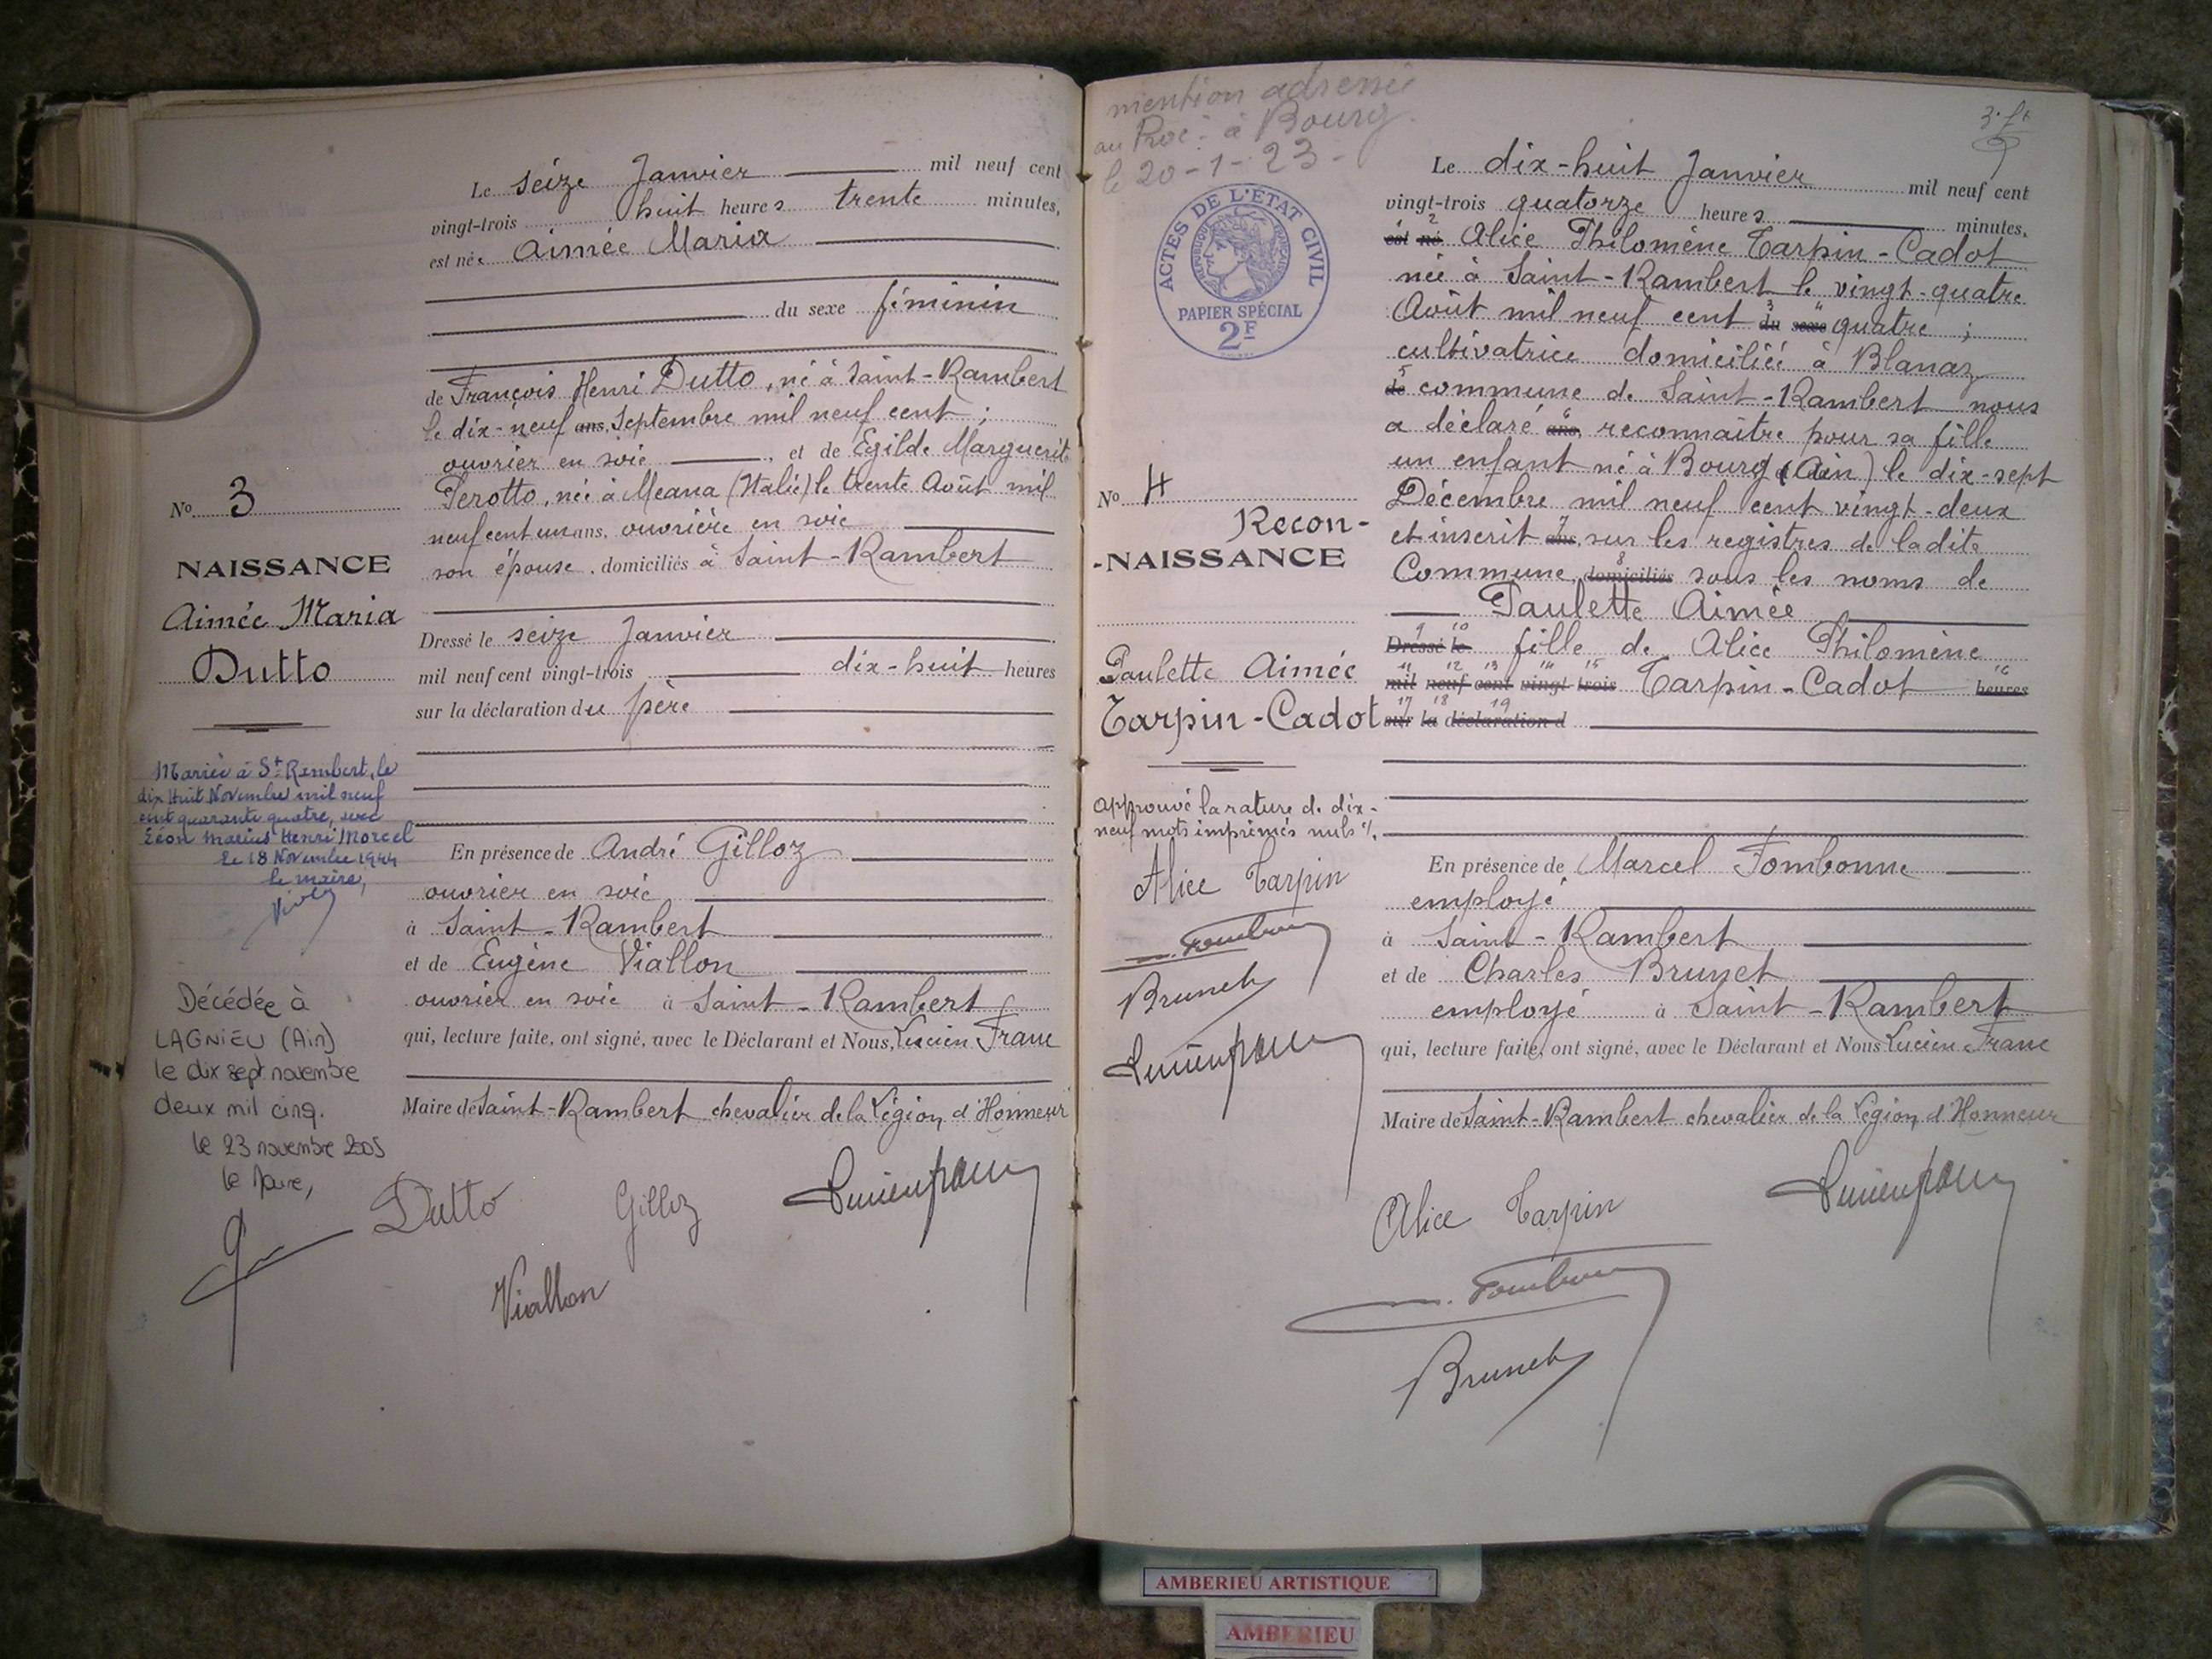 Le seize Janvier mil neuf cent
vingt-trois huit heures trente minutes,
est née Aimée Maria
du sexe féminin
de François Henri Dutto, né à Saint-Rambert
le dix-neuf ans, Septembre mil neuf cent ;
ouvrier en soie, et de Egilde Marguerite
Perotto, née à Meana (Italie) le trente Août mil
neuf cent un ans, ouvrière en soie
son épouse, domiciliés à Saint-Rambert
Dressé le seize Janvier
mil neuf cent vingt-trois dix-huit heures
sur la déclaration du père
En présence de André Gilloz
ouvrier en soie
à Saint-Rambert
et de Eugène Viallon
ouvrier en soie à Saint-Rambert
qui, lecture faite, ont signé, avec le Déclarant et Nous, Lucien Franc
Maire de Saint-Rambert chevalier de la Légion d'Honneur
Dutto Gilloz
Viallon
No 3
NAISSANCE
Aimée Maria
Dutto
Mariée à St Rambert, le
dix huit Novembre mil neuf
cent quarante quatre, avec
Léon Marius Henri Morcel
Le 18 Novembre 1944
le maire,
Décédée à
LAGNIEU (Ain)
le dix sept novembre
deux mil cinq.
le 23 novembre 2005
le Maire,
mention adressée
au Proc. à Bourg.
le 20-1-23-
ACTES DE L'ÉTAT CIVIL
RÉPUBLIQUE FRANÇAISE
PAPIER SPÉCIAL
2F
No 4
Recon-
-NAISSANCE
Paulette Aimée
Tarpin-Cadot
approuvé la rature de dix-
neuf mots imprimés nuls ./.
Alice Tarpin
Brunet
Le dix-huit Janvier mil neuf cent
vingt-trois quatorze heures minutes,
est né 2 Alice Philomène Tarpin-Cadot
née à Saint-Rambert le vingt-quatre
Août mil neuf cent du 3 sexe 4 quatre ;
cultivatrice domiciliée à Blanaz
de 5 commune de Saint-Rambert nous
a déclaré ans, 6 reconnaître pour sa fille
un enfant né à Bourg (Ain) le dix-sept
Décembre mil neuf cent vingt-deux
et inscrit ans, 7 sur les registres de ladite
Commune, domiciliés 8 sous les noms de
Paulette Aimée
Dressé 9 le 10 fille de Alice Philomène
mil 11 neuf 12 cent 13 vingt 14 trois 15 Tarpin-Cadot heures 16
sur 17 la 18 déclaration d 19
En présence de Marcel Fombonne
employé
à Saint-Rambert
et de Charles Brunet
employé à Saint-Rambert
qui, lecture faite, ont signé, avec le Déclarant et Nous Lucien Franc
Maire de Saint-Rambert chevalier de la Légion d'Honneur
Alice Tarpin
Brunet
AMBERIEU ARTISTIQUE
AMBERIEU